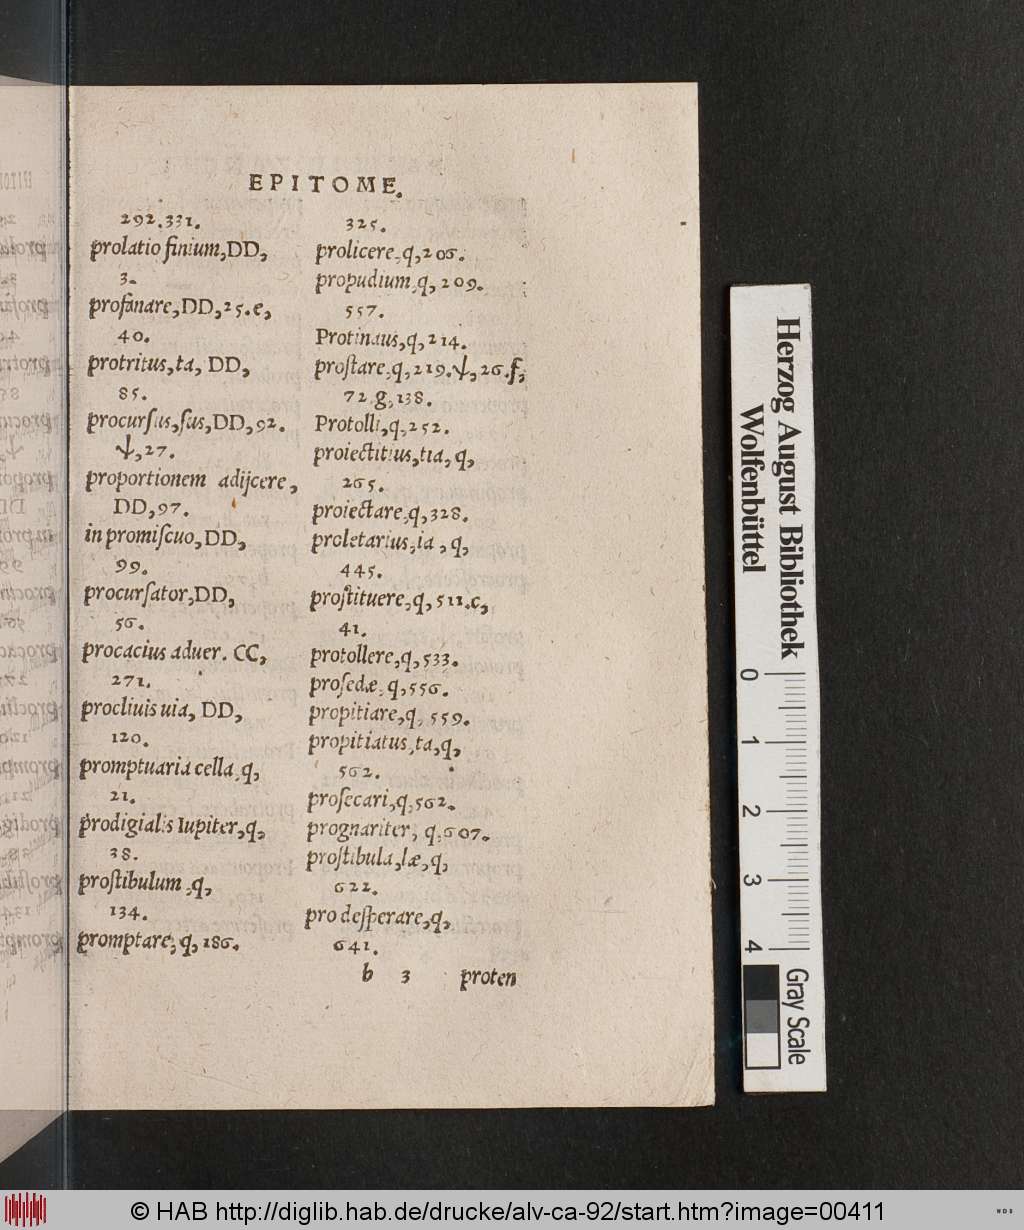 EPITOME.
292.331.
prolatio finium,DD,
3.
profanare,DD,25.e,
40.
protritus,ta, DD,
85.
procurſus,ſus,DD,92.
ψ,27.
proportionem adijcere,
DD,97.
in promiſcuo,DD,
99.
procurſator,DD,
56.
procacius aduer. CC,
271.
procliuis uia, DD,
120.
promptuaria cella,q,
21.
prodigialis Iupiter,q,
38.
proſtibulum,q,
134.
promptare,q,186.
325.
prolicere,q,206.
propudium,q,209.
557.
Protinaus,q,214.
proſtare,q,219.ψ,26.f,
72.g,138.
Protolli,q,252.
proiectitius,tia,q,
265.
proiectare,q,328.
proletarius,ia,q,
445.
proſtituere,q,511.c,
41.
protollere,q,533.
proſedæ,q,556.
propitiare,q,559.
propitiatus,ta,q,
562.
proſecari,q,562.
prognariter, q,607.
proſtibula,læ,q,
622.
pro deſperare,q,
641.
b 3 proten
Herzog August Bibliothek
Wolfenbüttel
0 1 2 3 4
Gray Scale
© HAB http://diglib.hab.de/drucke/alv-ca-92/start.htm?image=00411